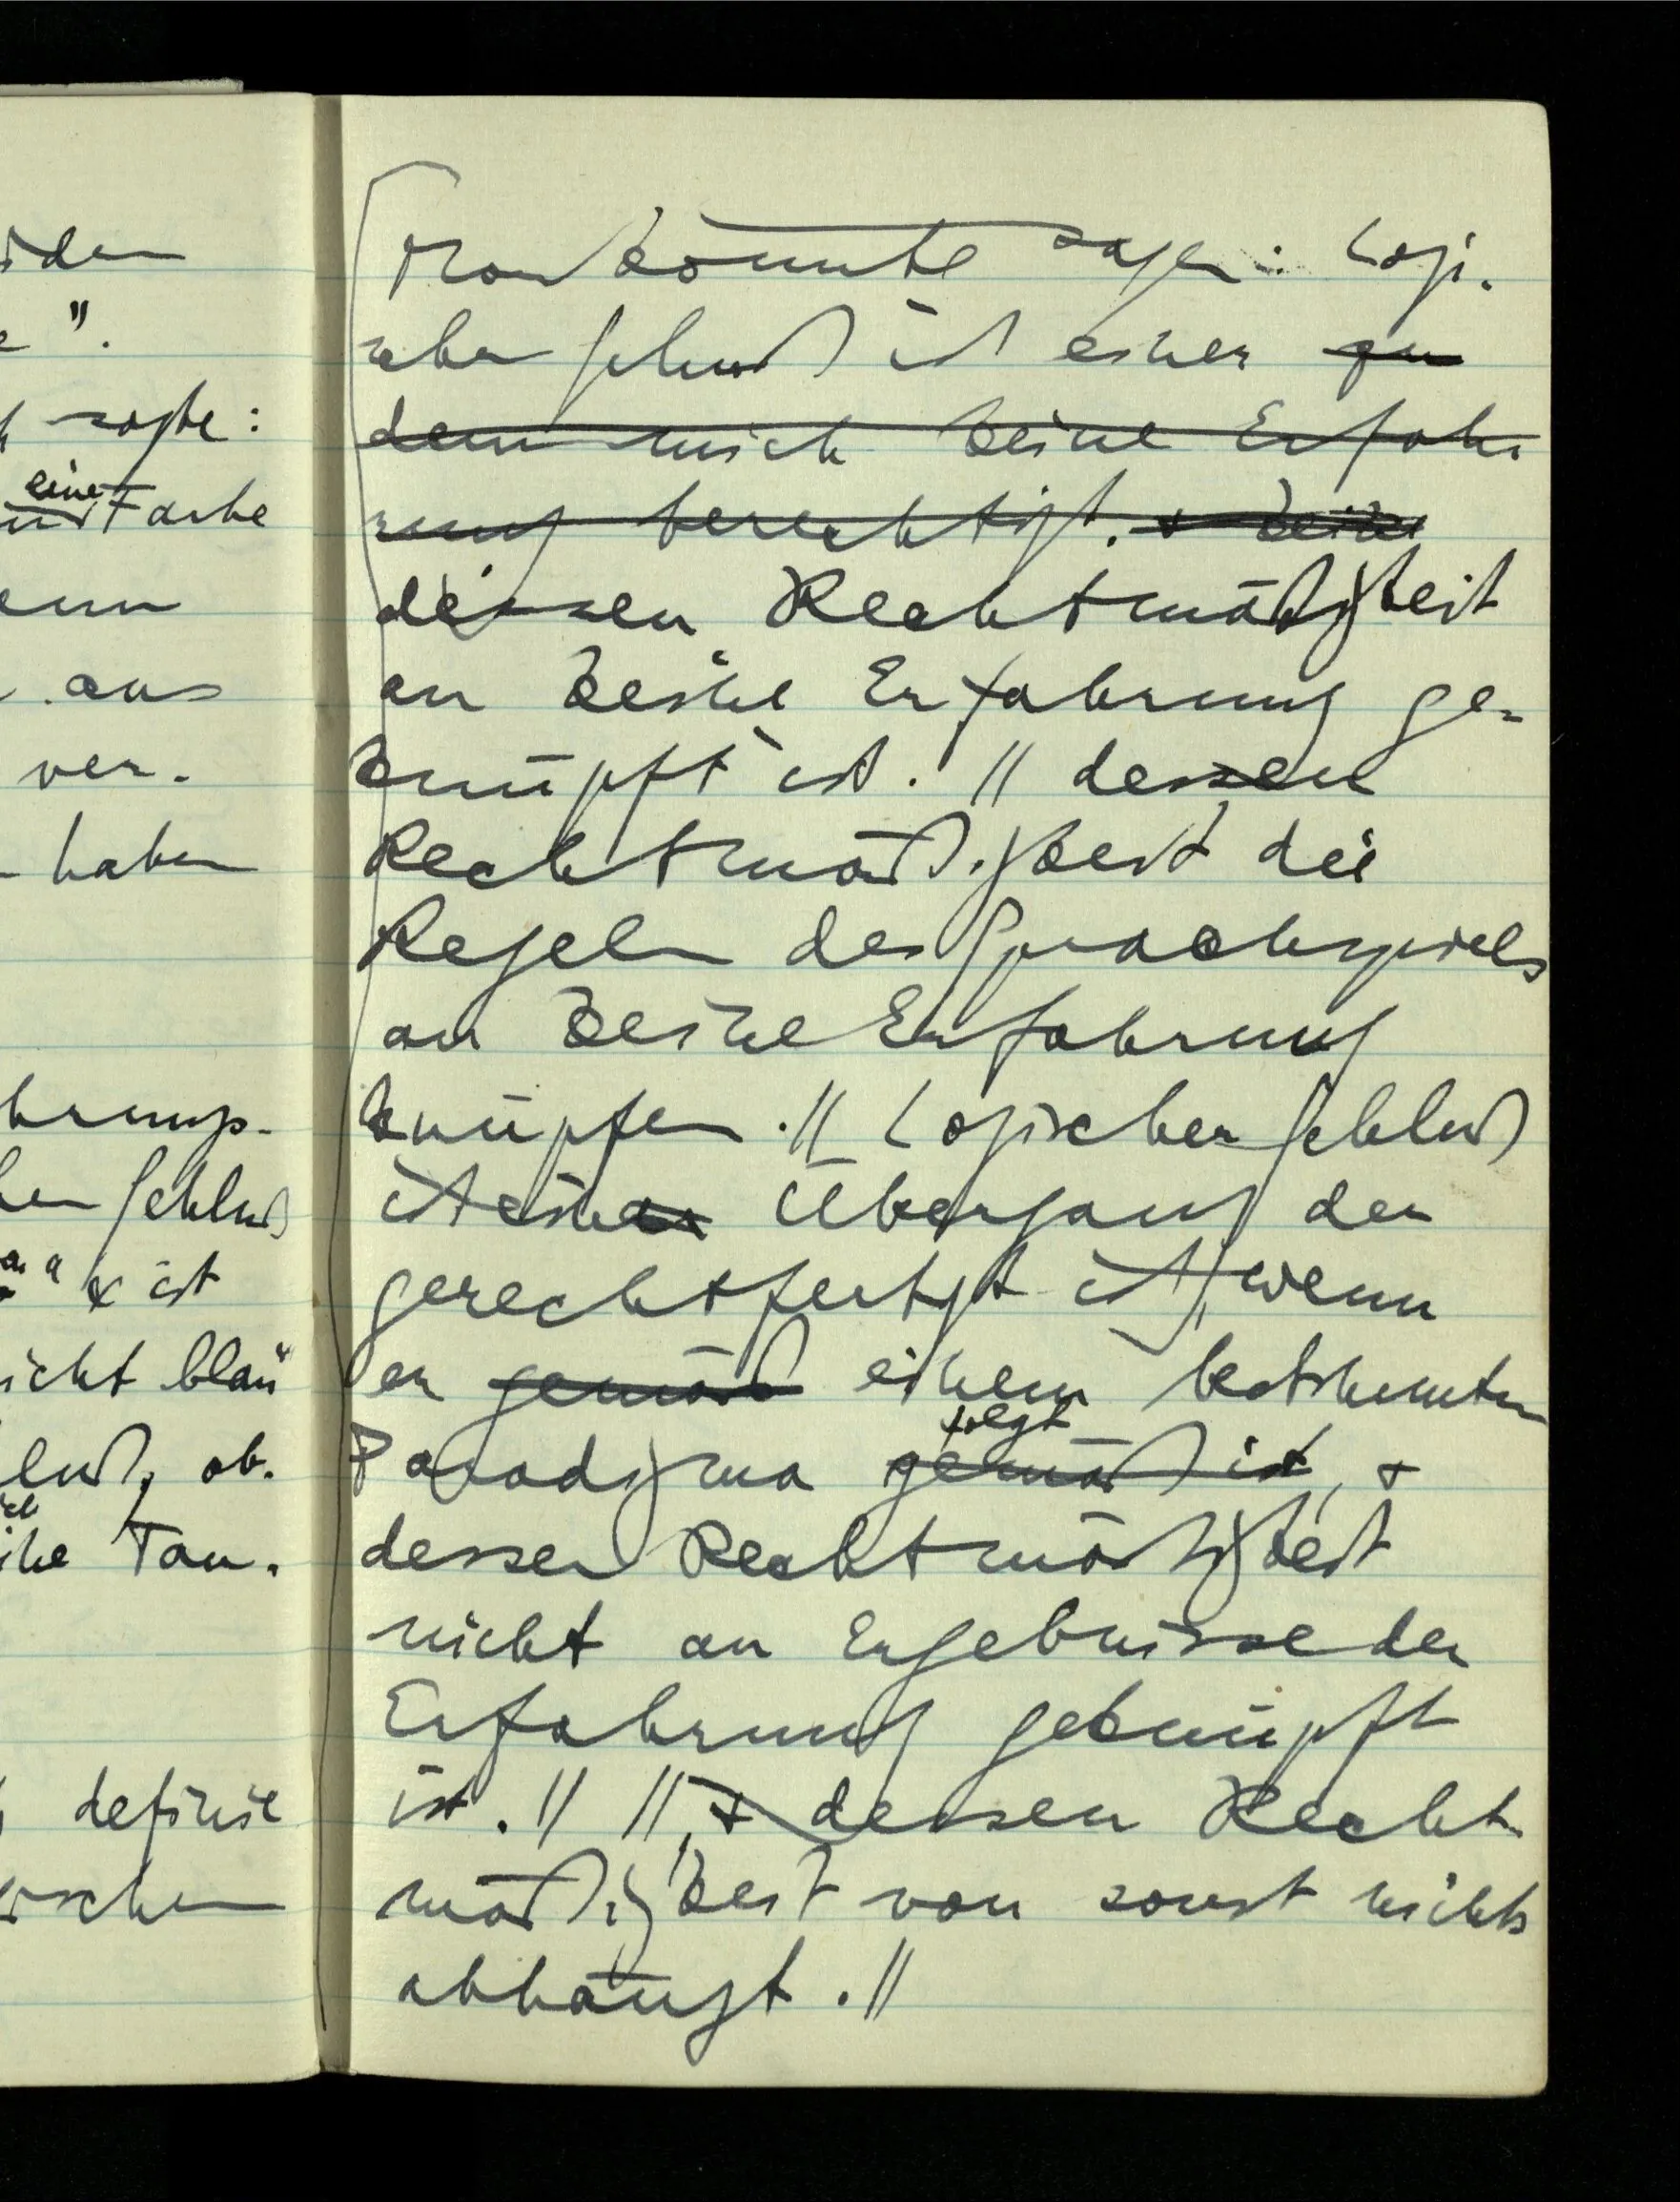 iden
e".
h sagte:
eine
und Farbe
enn
aus
ver-
haben
hrungs-
her Schluß
a " x ist
nicht blau"
luß, ob-
ich
ihe Tau-
definie
ischen
Man könnte sagen: Logi-
scher Schluß ist einer zu
dem mich keine Erfah
rung berechtigt. & keine
dessen Rechtmäßigkeit
an keine Erfahrung ge-
knüpft ist. // dessen
Rechtmäßigkeit die
Regeln des Sprachspiels
an keine Erfahrung
knüpfen. // Logischer Schluß
ist einer Übergang der
gerechtfertigt ist, wenn
er gemäß einem bestimmten
folgt
Paradigma gemäß ist, &
dessen Rechtmäßigkeit
nicht an Ergebnisse der
Erfahrung geknüpft
ist. // //, & dessen Recht
mäßigkeit von sonst nichts
abhängt. //